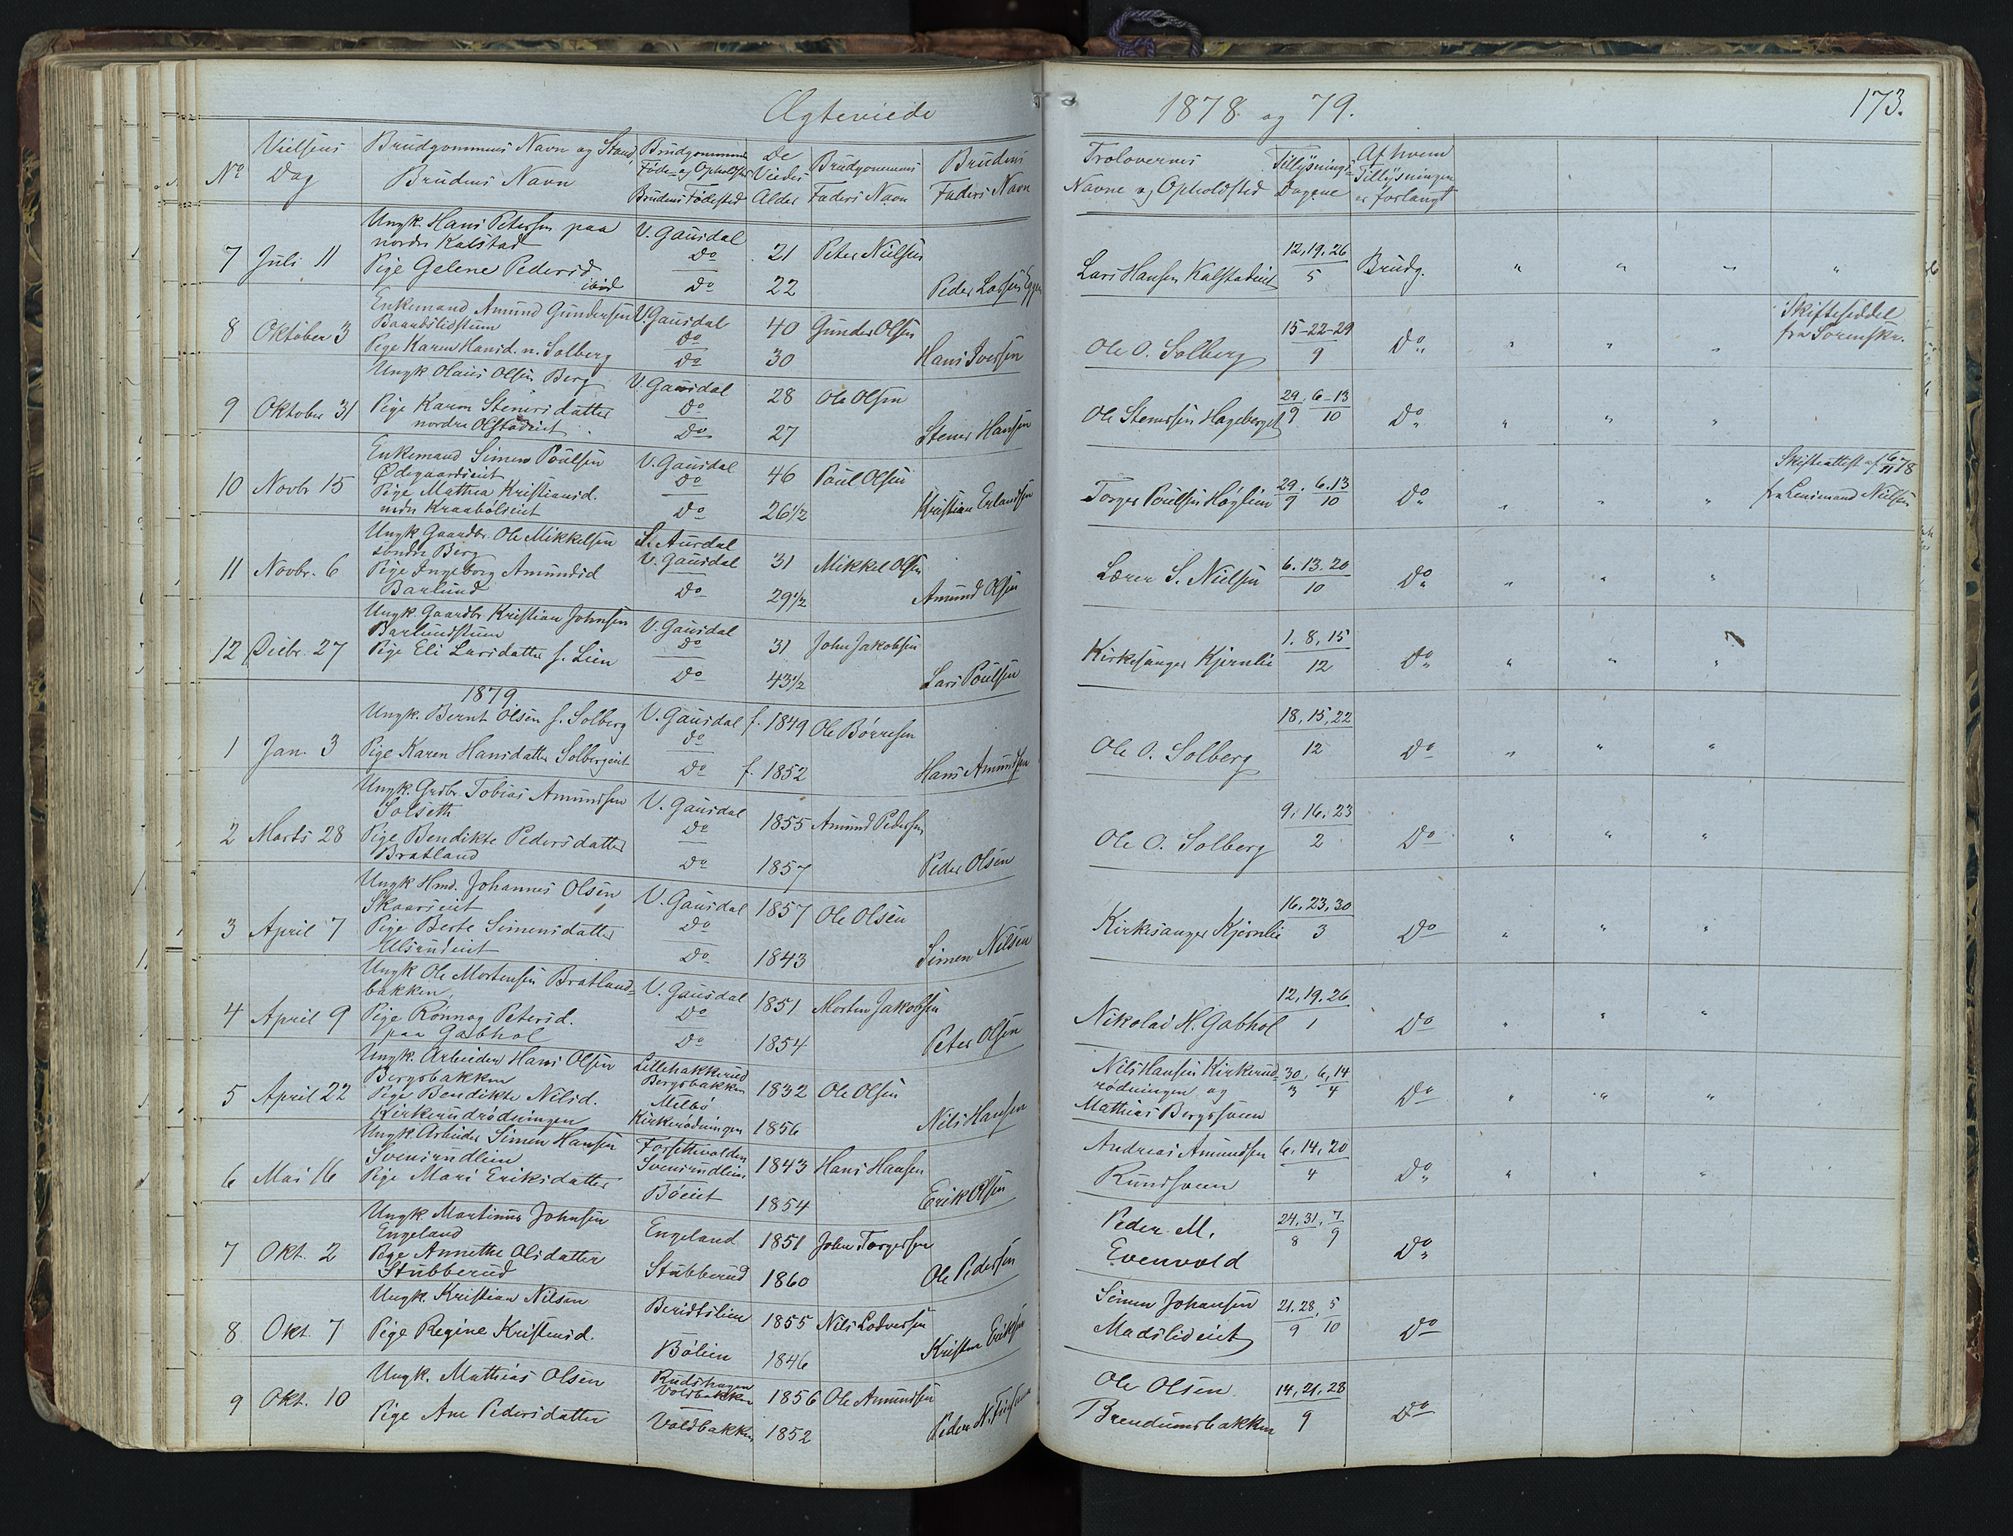 Ægteviede 1878 og 79. 173.
No
Vielsens Dag
Brudgommens Navn og Stand,
Brudens Navn
Brudgommens Føde- og Opholdsted
Brudens Fødested
De Viedes Alder
Brudgommens Faders Navn
Brudens Faders Navn
Trolovernes Navne og Opholdsted
Tillysnings Dagene
Af hvem Tillysningen er forlangt
7 Juli 11
Ungk. Hans Petersen paa
nordre Kalstad
Pige Gelene Pedersd.
ibid
V. Gausdal
Do
Do
21
22
Peter Nielsen
Peder Larsen Eggen
Lars Hansen Kalstadeiet
12, 19, 26
5
Brudg.
8 Oktober 3
Enkemand Amund Gundersen
Baardslistuen
Pige Karen Hansd. n. Solberg
V. Gausdal
Do
Do
40
30
Gunder Olsen
Hans Iversen
Ole O. Solberg
15-22-29
9
Do
Skifteseddel
fra Sorenskr.
9 Oktober 31
Ungk Olaus Olsen Berg
Pige Karen Stenersdatter
nordre Olstadeiet
V. Gausdal
Do
Do
28
27
Ole Olsen
Stener Hansen
Ole Stenersen Hageberget
29, 6-13
9 10
Do
10 Novbr 15
Enkemand Simen Poulsen
Ødegaardseiet
Pige Mathea Kristiansd.
nedre Kraabøleiet
V. Gausdal
Do
Do
46
26 1/2
Poul Olsen
Kristian Erlandsen
Torger Poulsen Høglien
29, 6, 13
9 10
Do
Skifteattest af 16/11 78
fra Lensmand Nielsen
11 Novbr. 6
Ungk Gaardbr. Ole Mikkelsen
søndre Berg
Pige Ingeborg Amundsd
Barlund
S. Aurdal
V. Gausdal
Do
31
29 1/2
Mikkel Olsen
Amund Olsen
Lærer S. Nielsen
6. 13. 20
10
Do
12 Decbr. 27
Ungk. Gaardbr Kristian Johnsen
Barlundstuen
Pige Eli Larsdatter s. Lien
V. Gausdal
Do
Do
31
43 1/2
John Jakobsen
Lars Poulsen
Kirkesanger Kjernlie
1, 8, 15
12
Do
1879
1 Jan. 3
Ungk. Bernt Olsen s. Solberg
Pige Karen Hansdatter Solbergeiet
V. Gausdal
Do
Do
f. 1849
f. 1852
Ole Børresen
Hans Amundsen
Ole O. Solberg
18, 15, 22
12
Do
2 Marts 28
Ungk. Grdbr. Tobias Amundsen
Solseth
Pige Bendikte Pedersdatter
Bratland
V. Gausdal
Do
Do
1855
1857
Amund Pedersen
Peder Olsen
Ole O. Solberg
9, 16, 23
2
Do
3 April 7
Ungk Hmd. Johannes Olsen
Skaarseiet
Pige Berte Simensdatter
Ulsrudeiet
V. Gausdal
Do
Do
1857
1843
Ole Olsen
Simen Nilsen
Kirkesanger Kjernlie
16, 23, 30
3
Do
4 April 9
Ungk Ole Mortensen Bratland-
bakken,
Pige Rønnog Petersd.
paa Gabhol
V. Gausdal
Do
Do
1851
1854
Morten Jakobsen
Peter Olsen
Nikolai H. Gabhol
12, 19, 26
1
Do
5 April 22
Ungk. Arbeider Hans Olsen
Bergsbakken
Pige Bendikte Nilsd.
Kirkerudrødningen
Lillehakkerud
Bergsbakken
Melbø
Kirkerødningen
1832
1856
Ole Olsen
Nils Hansen
Nils Hansen Kirkerud-
rødningen og
Mathias Bergssveen
30, 6, 14
3 4
Do
6 Mai 16
Ungk. Arbeider Simen Hansen
Svensrudlien
Pige Mari Eriksdatter
Forsethvolden
Svensrudlien
Bøeiet
1843
1854
Hans Hansen
Erik Olsen
Andreas Amundsen
Rundsveen
6, 14, 20
4
Do
7 Okt. 2
Ungk Martinus Johnsen
Engeland
Pige Annethe Olsdatter
Stubberud
Engeland
Stubberud
1851
1860
John Torgersen
Ole Pedersen
Peder M.
Evenvold
24, 31, 7
8 9
Do
8 Okt. 7
Ungk. Kristian Nilsen
Pige Regine Kristensd.
Beridtslien
Bølien
1855
1846
Nils Lodversen
Kristen Eriksen
Simen Johansen
Madslideiet
21, 28, 5
9 10
Do
9 Okt. 10
Ungk. Mathias Olsen
Pige Ane Pedersdatter
Rudshagen
Voldbakken
Voldbakken
1856
1852
Ole Amundsen
Peder N.
Ole Olsen
Brendumsbakken
14, 21, 28
9
Do